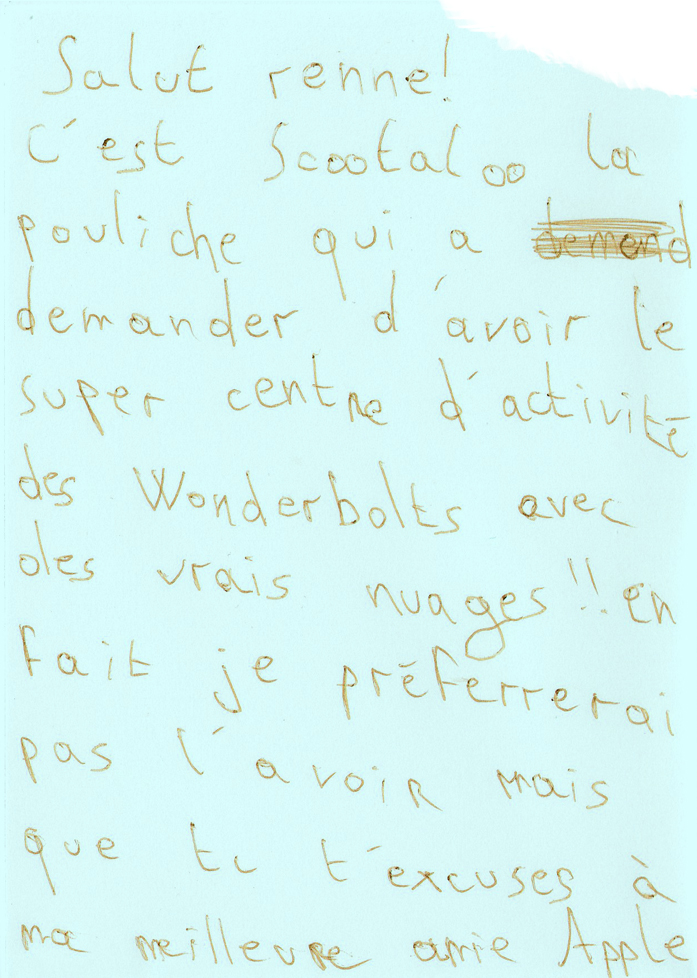 Salut renne!
C'est Scootaloo la
pouliche qui a demand
demander d'avoir le
super centre d'activité
des Wonderbolts avec
des vrais nuages!! en
fait je préferrerai
pas l'avoir mais
que tu t'excuses à
ma meilleure amie Apple